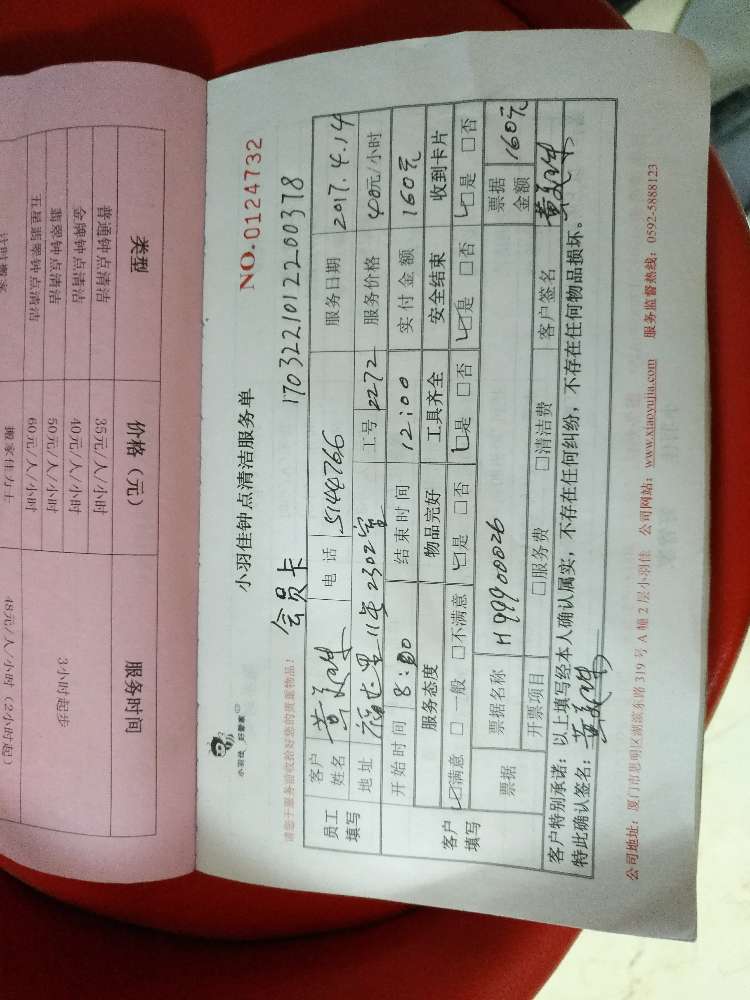 小羽佳钟点清洁服务单
NO.0124732
小羽佳 好管家
会员卡 1703221012200378
请您于服务前收拾好您的贵重物品!
员工填写
客户姓名 黄 电话 5144766 服务日期 2017.4.14
地址 11号2302室 工号 2272 服务价格 40元/小时
开始时间 8:00 结束时间 12:00 实付金额 160元
客户填写
服务态度 物品完好 工具齐全 安全结束 收到卡片
☑满意 □一般 □不满意 ☑是 □否 ☑是 □否 ☑是 □否 ☑是 □否
票据 票据名称 H99900026 票据金额 160元
开票项目 □服务费 □清洁费 客户签名 黄
客户特别承诺:以上填写经本人确认属实,不存在任何纠纷,不存在任何物品损坏。
特此确认签名:黄
公司地址:厦门市思明区湖滨东路319号A幢2层小羽佳 公司网站:www.xiaoyujia.com 服务监督热线:0592-5888123
类型 价格(元) 服务时间
普通钟点清洁 35元/人/小时
金牌钟点清洁 40元/人/小时
翡翠钟点清洁 50元/人/小时
五星翡翠钟点清洁 60元/人/小时
3小时起步
计时搬家 搬家佳力士 48元/人/小时(2小时起)